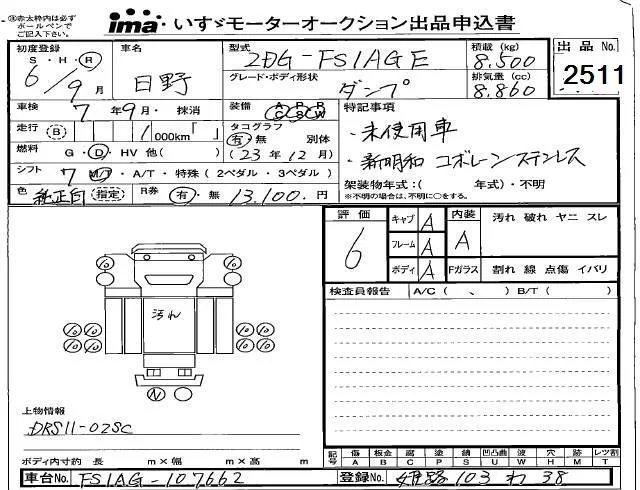 ※赤太枠内は必ずボールペンでご記入下さい。
ima いすゞモーターオークション出品申込書
初度登録 S・H・R 6/9月
車名 日野
型式 2DG-FS1AGE
積載(kg) 8.500
出品No. 2511
グレード・ボディ形状 ダンプ
排気量(cc) 8.860
車検 7年9月・抹消
装備 AC PS PW
特記事項
走行 B 1000km「 」
タコグラフ 有・無 別体
・未使用車
燃料 G・D・HV 他( )
(23年12月)
・新明和 コボレーンステンレス
シフト 7 M/T・A/T・特殊(2ペダル・3ペダル)
架装物年式:( 年式)・不明
※不明の場合は、不明に○をする。
色 純正白 指定
R券 有・無 13.100.円
評価 6
キャブ A
内装 A
汚れ 破れ ヤニ スレ
フレーム A
ボディ A
Fガラス 割れ 線 点傷 イバリ
検査員報告 A/C( 、 ) B/T( )
汚れ
10 10 10 10
10 10 10 10
N
上物情報
DRS11-02SC
ボディ内寸約 長 m×幅 m×高 m
記号 傷A 板金B 腐C 塗P 錆S 凹凸曲U 波W 穴H 跡M レツ割T
車台No. FS1AG-107662
登録No. 姫路 103 わ 38